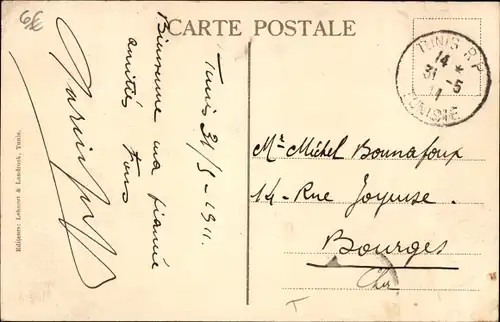 6€
CARTE POSTALE
TUNIS R.P
14 *
31 -5
11
TUNISIE
Tunis 31/5-1911.
Bienvenue ma fiancée
amitiés
Tous
Mr Michel Bonnafoux
14-Rue Joyeuse.
Bourges
Cher
T
Editeurs: Lehnert & Landrock, Tunis.